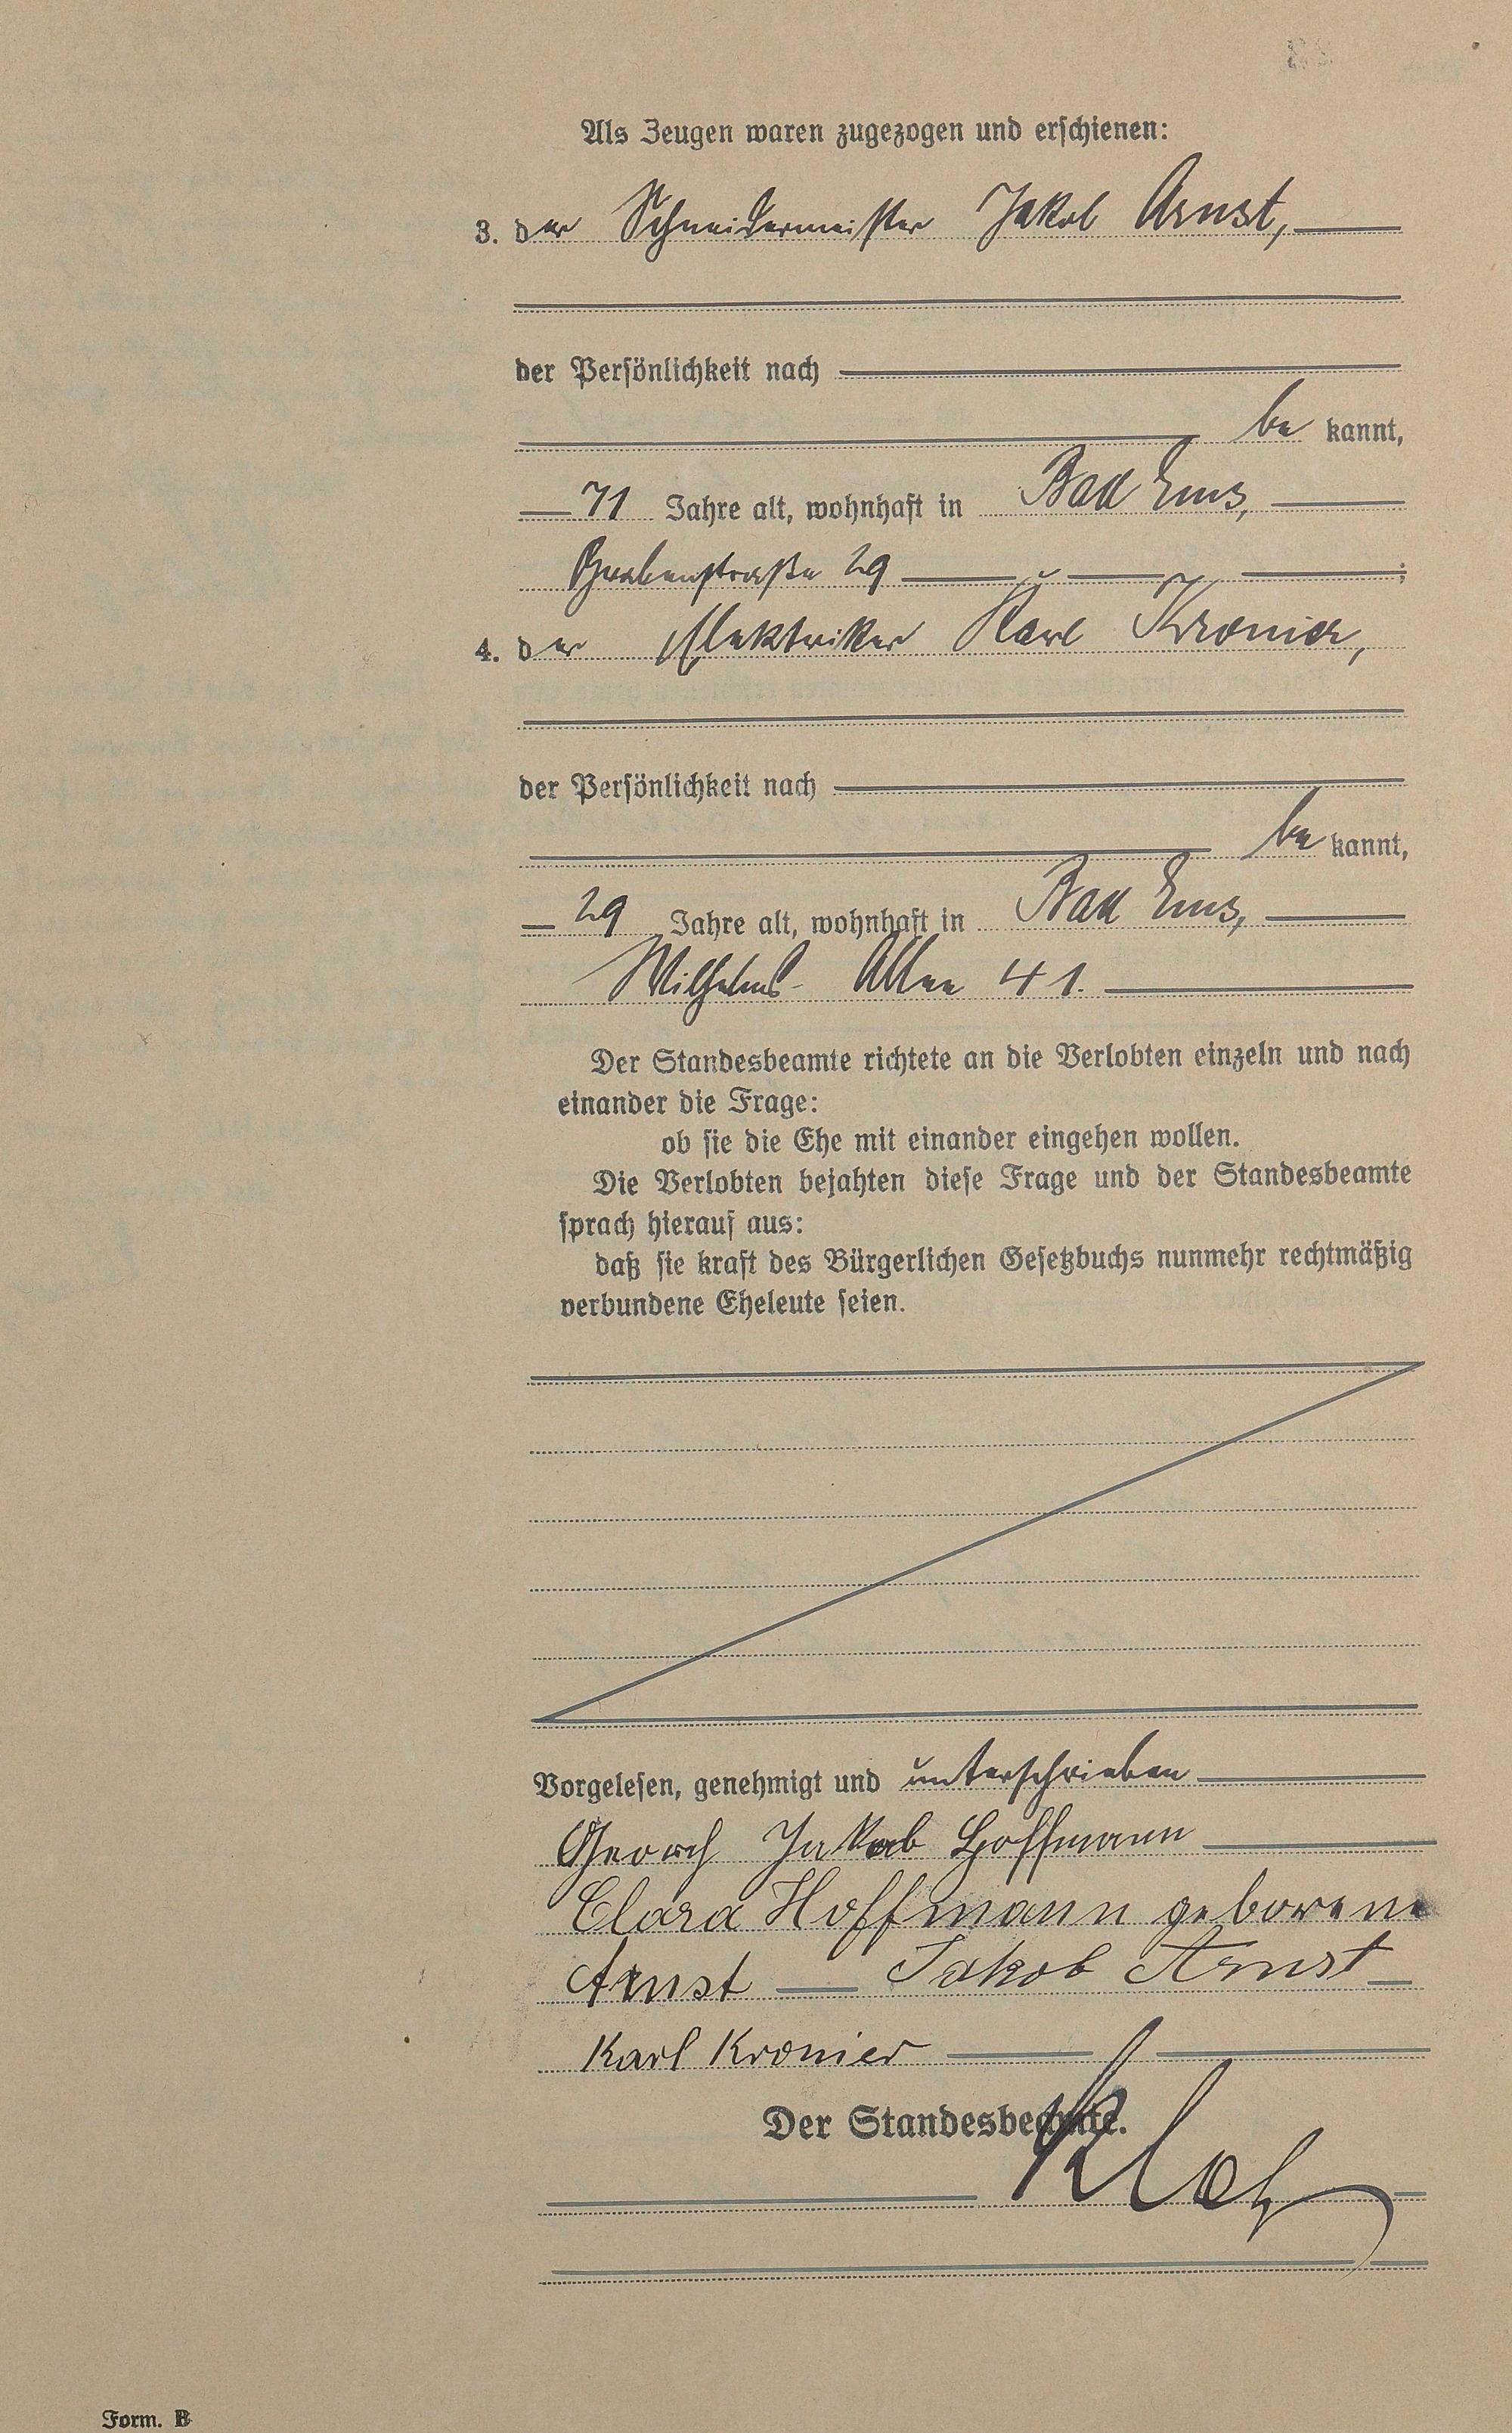 Als Zeugen waren zugezogen und erschienen:
3. der Schneidermeister Jakob Arnst,
der Persönlichkeit nach
be kannt,
71 Jahre alt, wohnhaft in Bad Ems,
Grabenstraße 29 ;
4. der Elektriker Karl Kronier,
der Persönlichkeit nach
be kannt,
29 Jahre alt, wohnhaft in Bad Ems,
Wilhelms-Allee 41.
Der Standesbeamte richtete an die Verlobten einzeln und nach
einander die Frage:
ob sie die Ehe mit einander eingehen wollen.
Die Verlobten bejahten diese Frage und der Standesbeamte
sprach hierauf aus:
daß sie kraft des Bürgerlichen Gesetzbuchs nunmehr rechtmäßig
verbundene Eheleute seien.
Vorgelesen, genehmigt und unterschrieben
Georch Jakob Hoffmann
Clara Hoffmann geborene
Arnst — Jakob Arnst
Karl Kronier
Der Standesbeamte.
Form. B